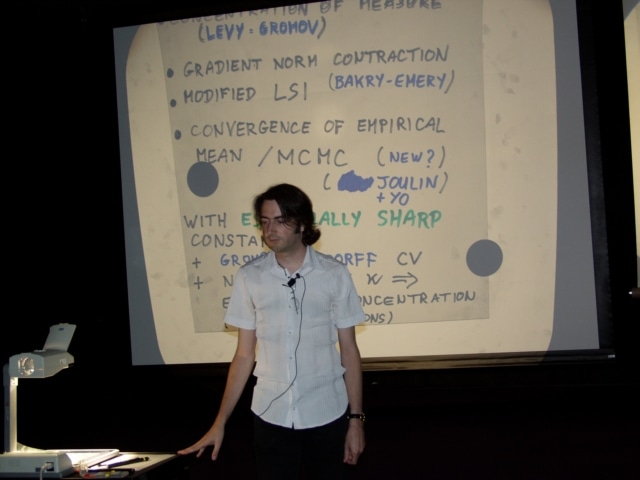 CONCENTRATION OF MEASURE
(LEVY = GROMOV)
• GRADIENT NORM CONTRACTION
• MODIFIED LSI (BAKRY-EMERY)
• CONVERGENCE OF EMPIRICAL
MEAN / MCMC (NEW?)
( JOULIN)
+ YO
WITH ES ALLY SHARP
CONSTA
+ GRO ORFF CV
+ N ⇒
E ONCENTRATION
ONS)